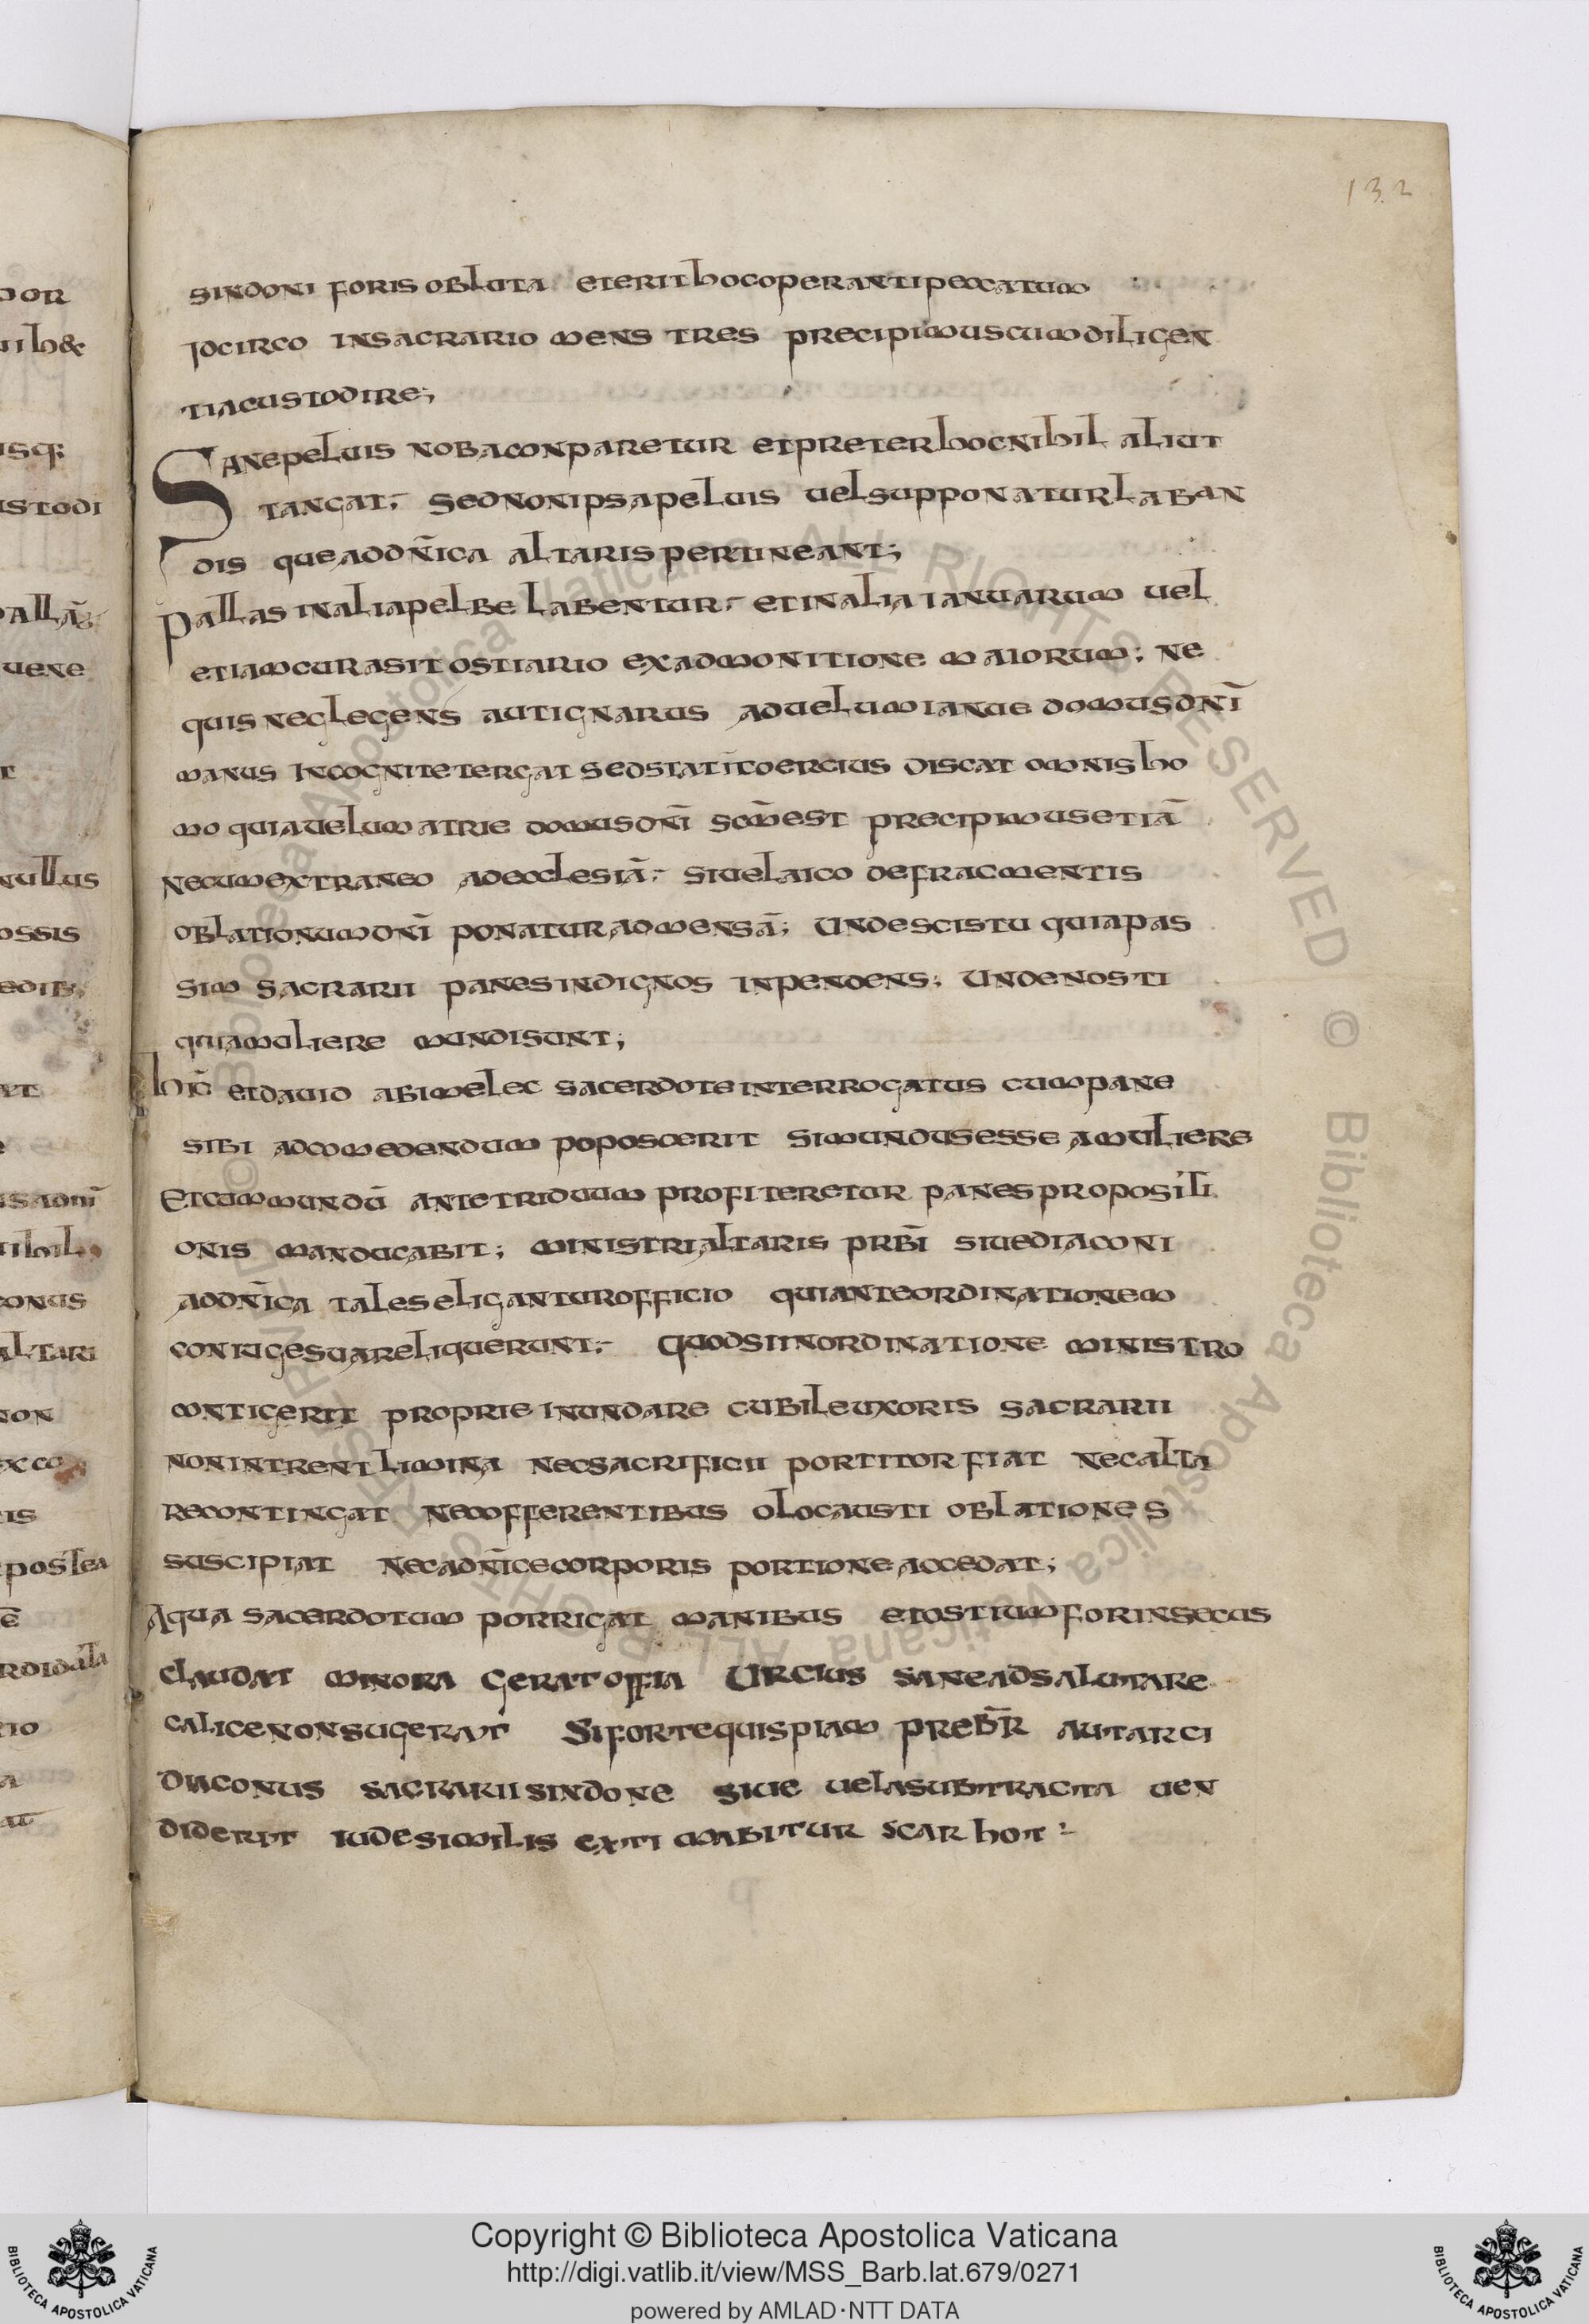 132
sindoni foris obluta et erit hoc operanti peccatum
Idcirco in sacrario mens tres precipimus cum diligen
tia custodire;
Sane peluis noba conparetur et preter hoc nihil aliut
tangat; Sed non ipsa peluis uel supponatur laban
dis que ad dn̄ica altaris pertineant;
Pallas in alia pelbe labentur; et in alia ianuarum uel
etiam cura sit ostiario ex admonitione maiorum; ne
quis neglegens aut ignarus ad uelum ianue domus dn̄i
manus incognite tergat sed statī coercius discat omnis ho
mo quia uelum atrie domus dn̄i sc̄m est precipimus etiā
nec um extraneo ad ecclesiā; siue laico de fracmentis
oblationum dn̄i ponatur ad mensā; unde scis tu quia pas
sim sacrarii panes indignos inpendens; unde nosti
quia muliere mundi sunt;
hīc et dauid abimelec sacerdote interrogatus cum pane
sibi ad comedendum poposcerit si mundus esse a muliere
Et cum mundū ante triduum profiteretur panes propositi
onis manducabit; ministri altaris prb̄i siue diaconi
ad dn̄ica tales eligantur officio qui ante ordinationem
coniuge sua reliquerunt; Quod si in ordinatione ministro
contigerit proprie inundare cubile uxoris sacrarii
non intrent limina nec sacrificii portitor fiat nec alta
re contingat nec offerentibus olocausti oblationes
suscipiat nec ad dn̄ice corporis portione accedat;
Aqua sacerdotum porrigat manibus et ostium forinsecus
claudat minora gerat offia Urcius sane ad salutare
calice non sugerat Si forte quispiam preb̄r aut arci
diaconus sacrarii sindone siue uela subtracta uen
diderit iude similis extimabitur scarhot
Copyright © Biblioteca Apostolica Vaticana
http://digi.vatlib.it/view/MSS_Barb.lat.679/0271
powered by AMLAD·NTT DATA